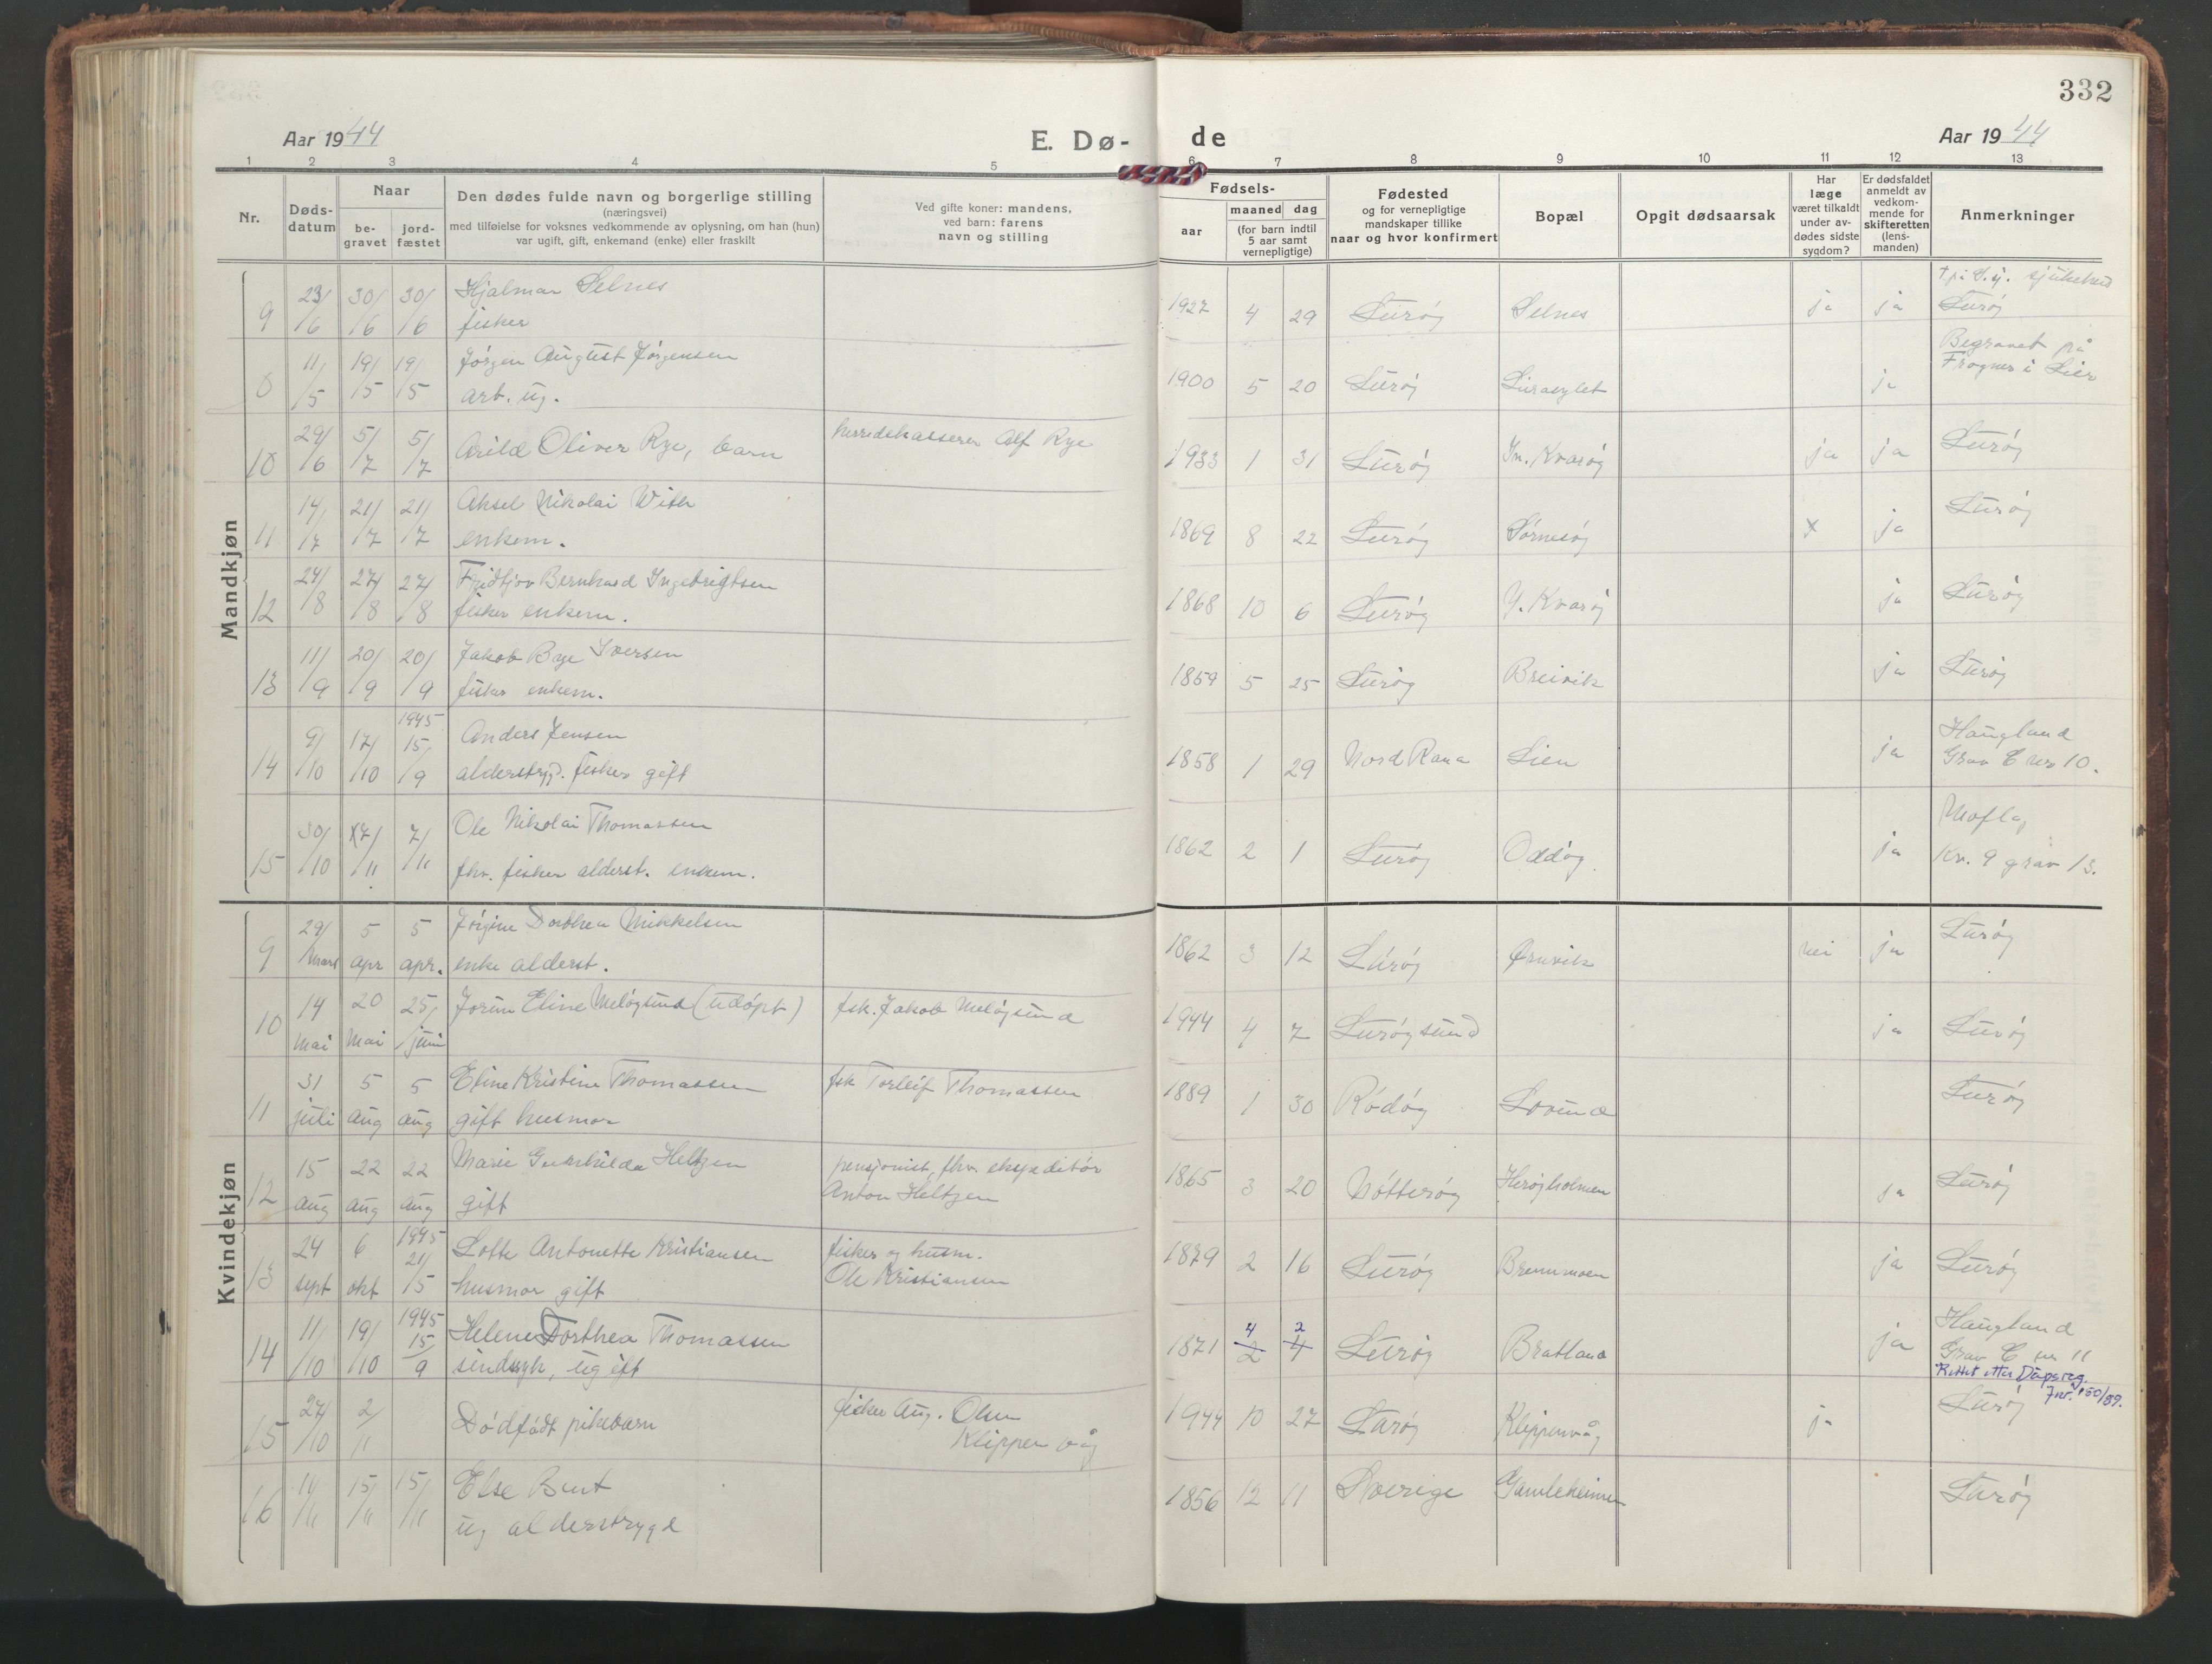 332
Aar 1944
E. Dø-
de
Aar 1944
1 2 3 4 5 6 7 8 9 10 11 12 13
Nr.
Døds-
datum
Naar
be-
gravet
jord-
fæstet
Den dødes fulde navn og borgerlige stilling
(næringsvei)
med tilføielse for voksnes vedkommende av oplysning, om han (hun)
var ugift, gift, enkemand (enke) eller fraskilt
Ved gifte koner: mandens,
ved barn: farens
navn og stilling
Fødsels-
aar
maaned dag
(for barn indtil
5 aar samt
vernepligtige)
Fødested
og for vernepligtige
mandskaper tillike
naar og hvor konfirmert
Bopæl
Opgit dødsaarsak
Har
læge
været tilkaldt
under av-
dødes sidste
sygdom?
Er dødsfaldet
anmeldt av
vedkom-
mende for
skifteretten
(lens-
manden)
Anmerkninger
Mandkjøn
9 23/6 30/6 30/6 Hjalmar Selnes
fisker
1927 4 29 Lurøy Selnes ja ja
sjukehus
Lurøy
8 11/5 19/5 19/5 Jørgen August Jørgensen
arb. ug.
1900 5 20 Lurøy ja
Begravet på
Frogner i Lier
10 29/6 5/7 5/7 Arild Oliver Rye, barn
herredskasserer Alf Rye
1933 1 31 Lurøy In. Kvarøy ja ja Lurøy
11 14/7 21/7 21/7 Aksel Nikolai With
enkem.
1869 8 22 Lurøy Sørnesøy x ja Lurøy
12 24/8 27/8 27/8 Fridtjov Bernhard Ingebrigtsen
fisker enkem.
1868 10 6 Lurøy Y. Kvarøy ja Lurøy
13 11/9 20/9 20/9 Jakob Bye Iversen
fisker enkem.
1859 5 25 Lurøy Breivik ja Lurøy
14 9/10 17/10 1945 15/9 Anders Jensen
alderstryg. fisker gift
1858 1 29 Nord Rana Lien ja
Haugland
Grav C nr 10.
15 30/10 7/11 7/11 Ole Nikolai Thomassen
fhv. fisker alderst. enkem.
1862 2 1 Lurøy Oddøy ja
Kv. 9 grav 13.
Kvindekjøn
9 29/mars 5 apr 5 apr. Jørgine Dorthea Mikkelsen
enke alderst.
1862 3 12 Lurøy Ørnvik nei ja Lurøy
10 14 mai 20 mai 25/juni Jorun Eline Meløysund (udøpt)
fisk. Jakob Meløysund
1944 4 7 Lurøysund ja Lurøy
11 31 juli 5 aug 5 aug Eline Kristine Thomassen
gift husmor
fisk Torleif Thomassen
1889 1 30 Rødøy Lovund Lurøy
12 15 aug 22 aug 22 aug Marie Gunhilda Heltzen
gift
pensjonist, fhv. ekspeditør
Anton Heltzen
1865 3 20 Nøtterøy Herøyholmen ja Lurøy
13 24 sept 6 okt 1945 21/5 Lotte Antonette Kristiansen
husmor gift
fisker og husm.
Ole Kristiansen
1879 2 16 Lurøy Bremmoen ja Lurøy
14 11/10 19/10 1945 15/9 Helene Dorthea Thomassen
sindsyk, ugift
1871 4 2 2 4 Lurøy Bratland ja
Haugland
Grav C nr 11
Rettet etter Dåpsreg.
Jnr. 150/89.
15 27/10 2/11 Dødfødt pikebarn
fisker Aug. Olsen
Klippenvåg
1944 10 27 Lurøy Klippenvåg ja Lurøy
16 11/11 15/11 15/11 Else Bunt
ug alderstrygd
1856 12 11 Sverige Gamleheimen Lurøy